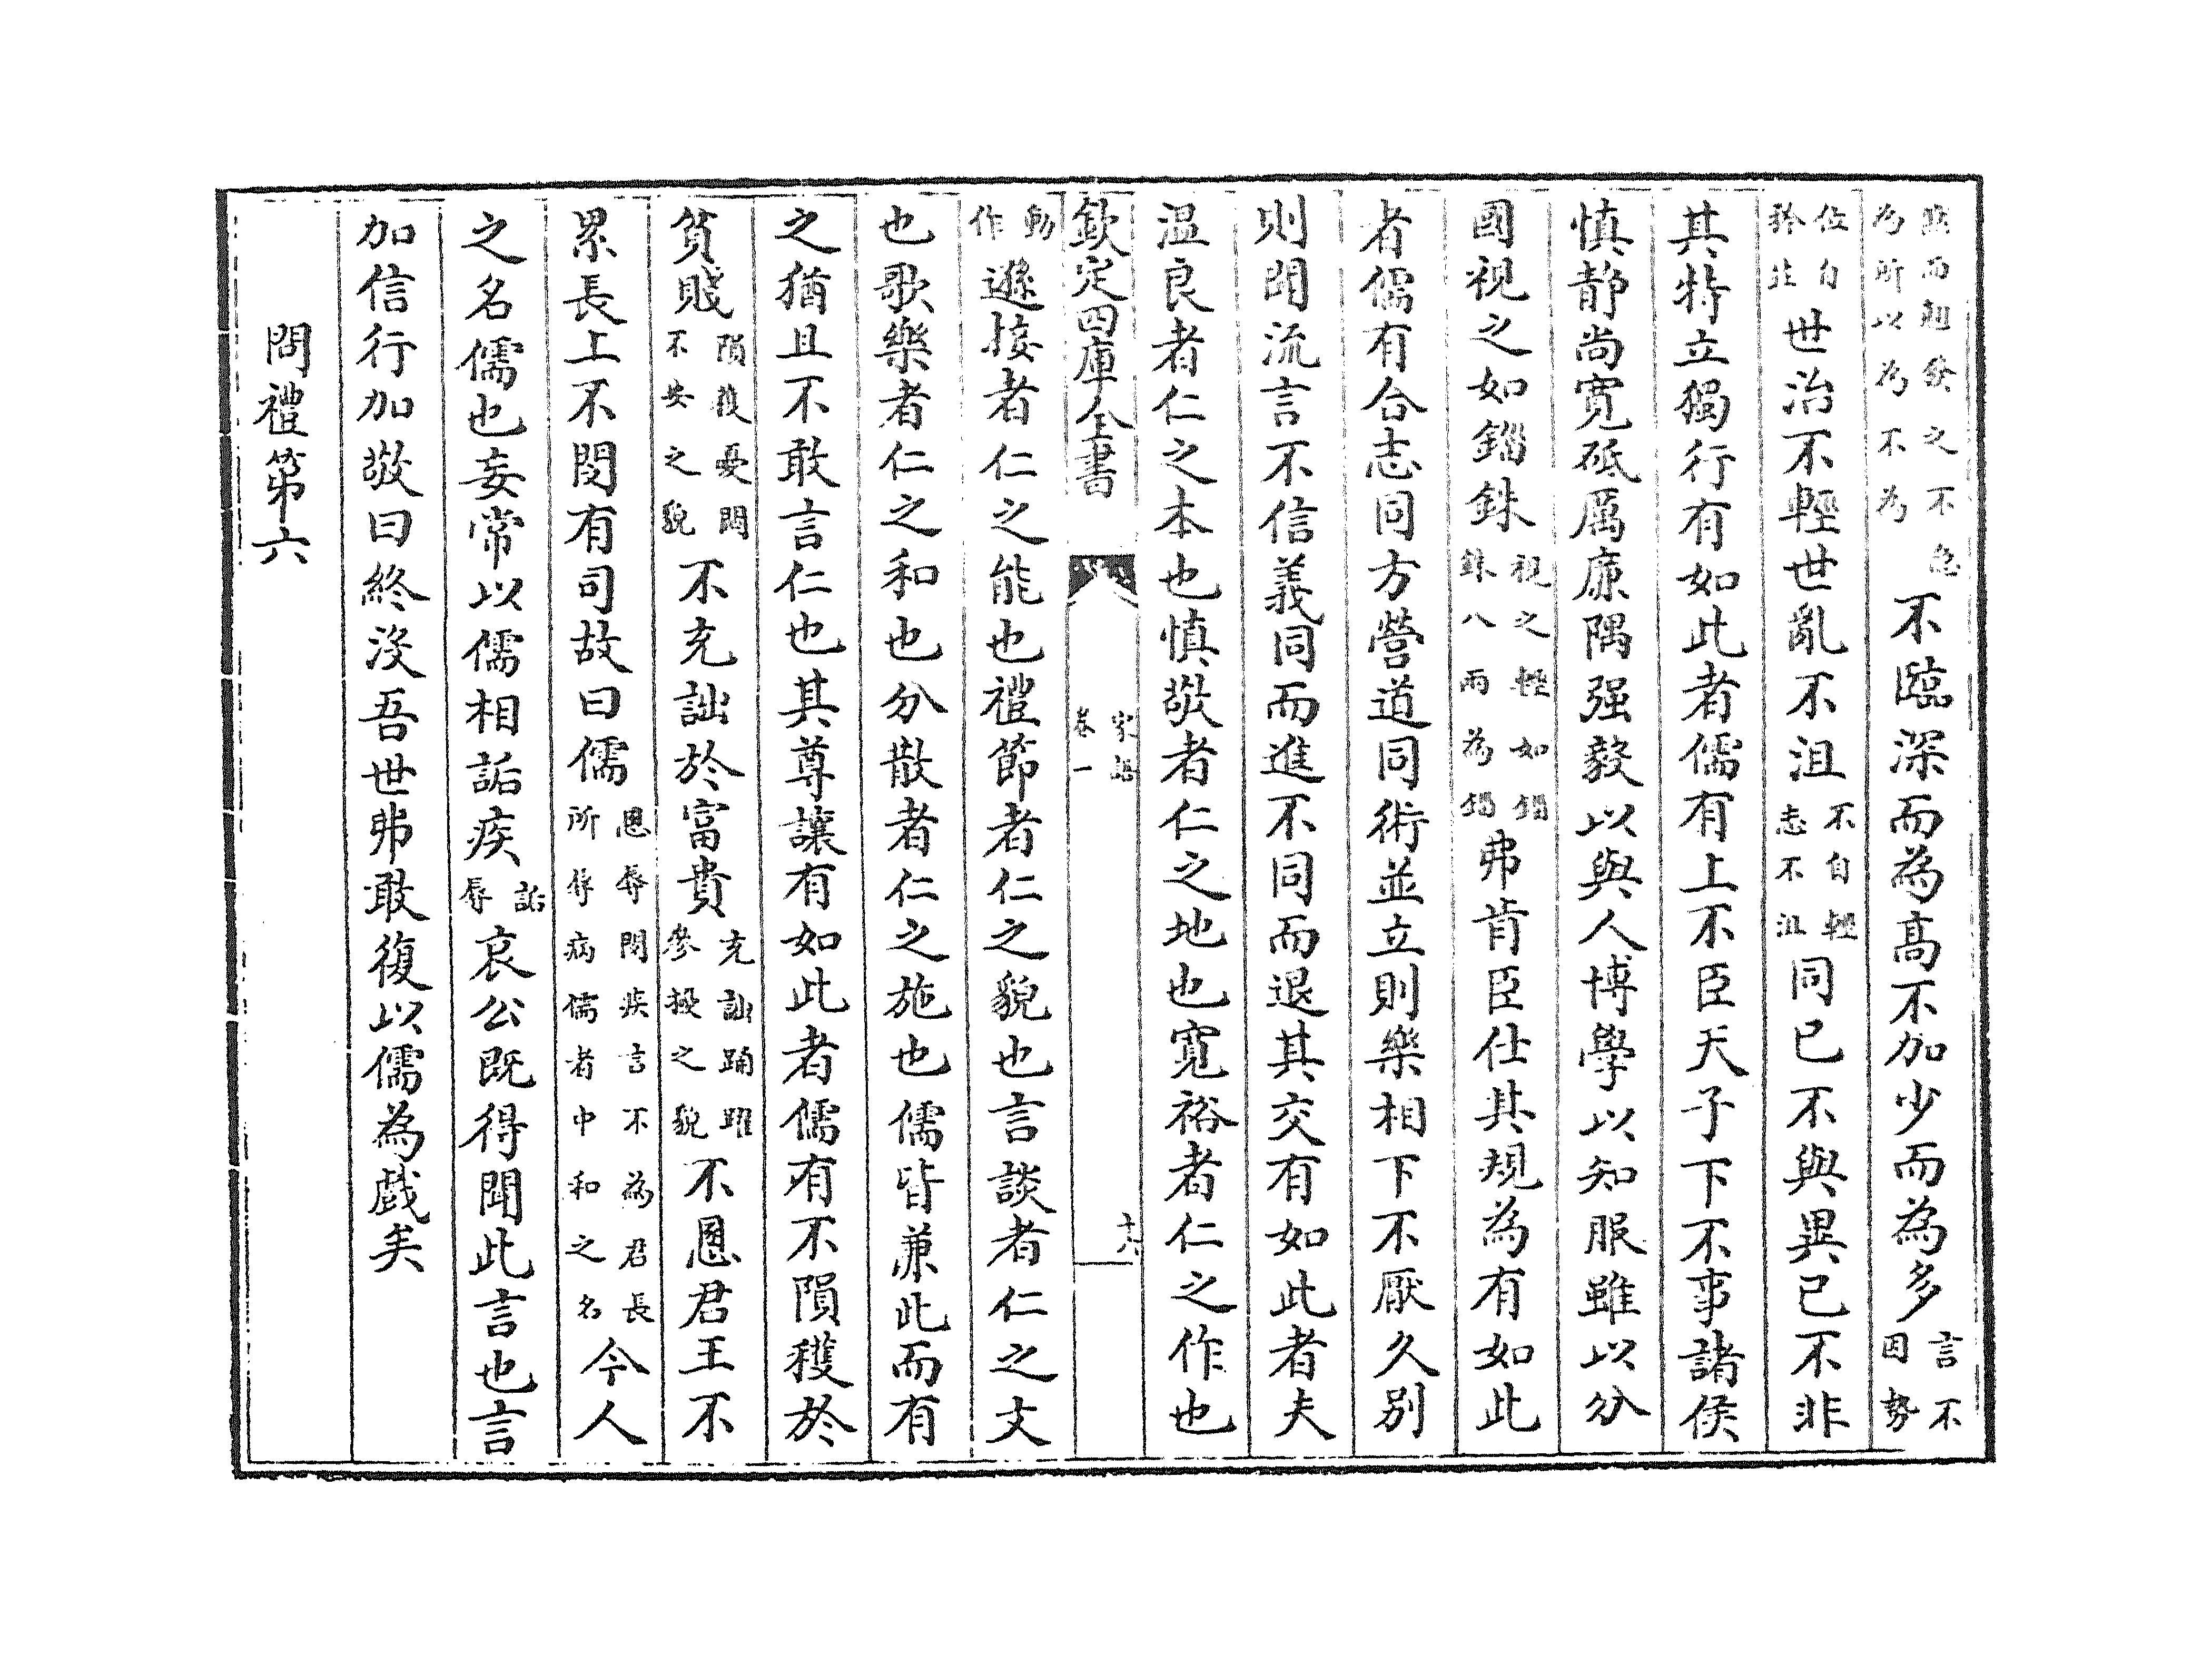 而翹發之不急為所以為不為不臨深而為高不加少而為多言不因勢
位自矜莊世治不輕世亂不沮不自輕志不沮同已不與異已不非
其特立獨行有如此者儒有上不臣天子下不事諸侯
慎静尚寛砥厲廉隅强毅以與人博學以知服雖以分
國視之如錙銖視之輕如錙銖八兩為錙弗肯臣仕其規為有如此
者儒有合志同方營道同術並立則樂相下不厭久別
則聞流言不信義同而進不同而退其交有如此者夫
温良者仁之本也慎敬者仁之地也寛裕者仁之作也
欽定四庫全書 家語卷一 十六
動作遜接者仁之能也禮節者仁之貌也言談者仁之文
也歌樂者仁之和也分散者仁之施也儒皆兼此而有
之猶且不敢言仁也其尊讓有如此者儒有不隕穫於
貧賤隕穫憂悶不安之貌不充詘於富貴充詘踊躍參擾之貌不慁君王不
累長上不閔有司故曰儒慁辱閔疾言不為君長所辱病儒者中和之名今人
之名儒也妄常以儒相詬疾詬辱哀公既得聞此言也言
加信行加敬曰終沒吾世弗敢復以儒為戲矣
問禮第六